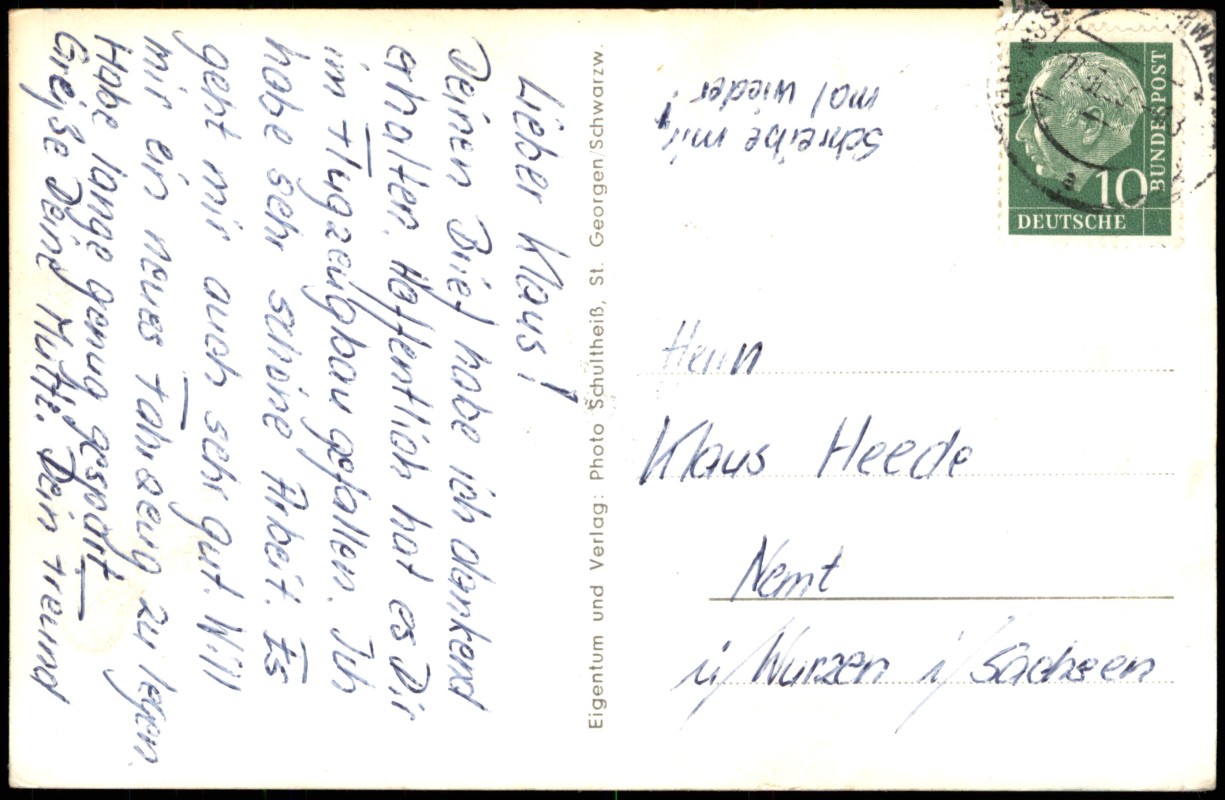 Lieber Klaus!
Deinen Brief habe ich dankend
erhalten. Hoffentlich hat es Dir
im Flugzeugbau gefallen. Ich
habe sehr schöne Arbeit. Es
geht mir auch sehr gut. Will
mir ein neues Fahrzeug zu legen.
Habe lange genug gespart.
Grüße Deine Mutti. Dein Freund
Eigentum und Verlag: Photo Schultheiß, St. Georgen/Schwarzw.
Schreibe mir
mal wieder!
10
DEUTSCHE
BUNDESPOST
Herrn
Klaus Heede
Nemt
ü/Wurzen i/Sachsen